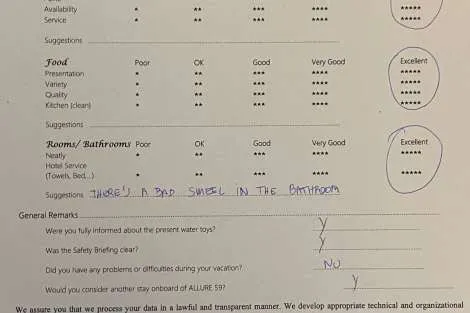 Availability * ** *** **** *****
Service * ** *** **** *****
Suggestions
Food Poor OK Good Very Good Excellent
Presentation * ** *** **** *****
Variety * ** *** **** *****
Quality * ** *** **** *****
Kitchen (clean) * ** *** **** *****
Suggestions
Rooms/ Bathrooms Poor OK Good Very Good Excellent
Neatly * ** *** **** *****
Hotel Service
(Towels, Bed,..) * ** *** **** *****
Suggestions THERE'S A BAD SMEEL IN THE BATHROOM
General Remarks
Were you fully informed about the present water toys? Y
Was the Safety Briefing clear? Y
Did you have any problems or difficulties during your vacation? NO
Would you consider another stay onboard of ALLURE 59? Y
We assure you that we process your data in a lawful and transparent manner. We develop appropriate technical and organizational